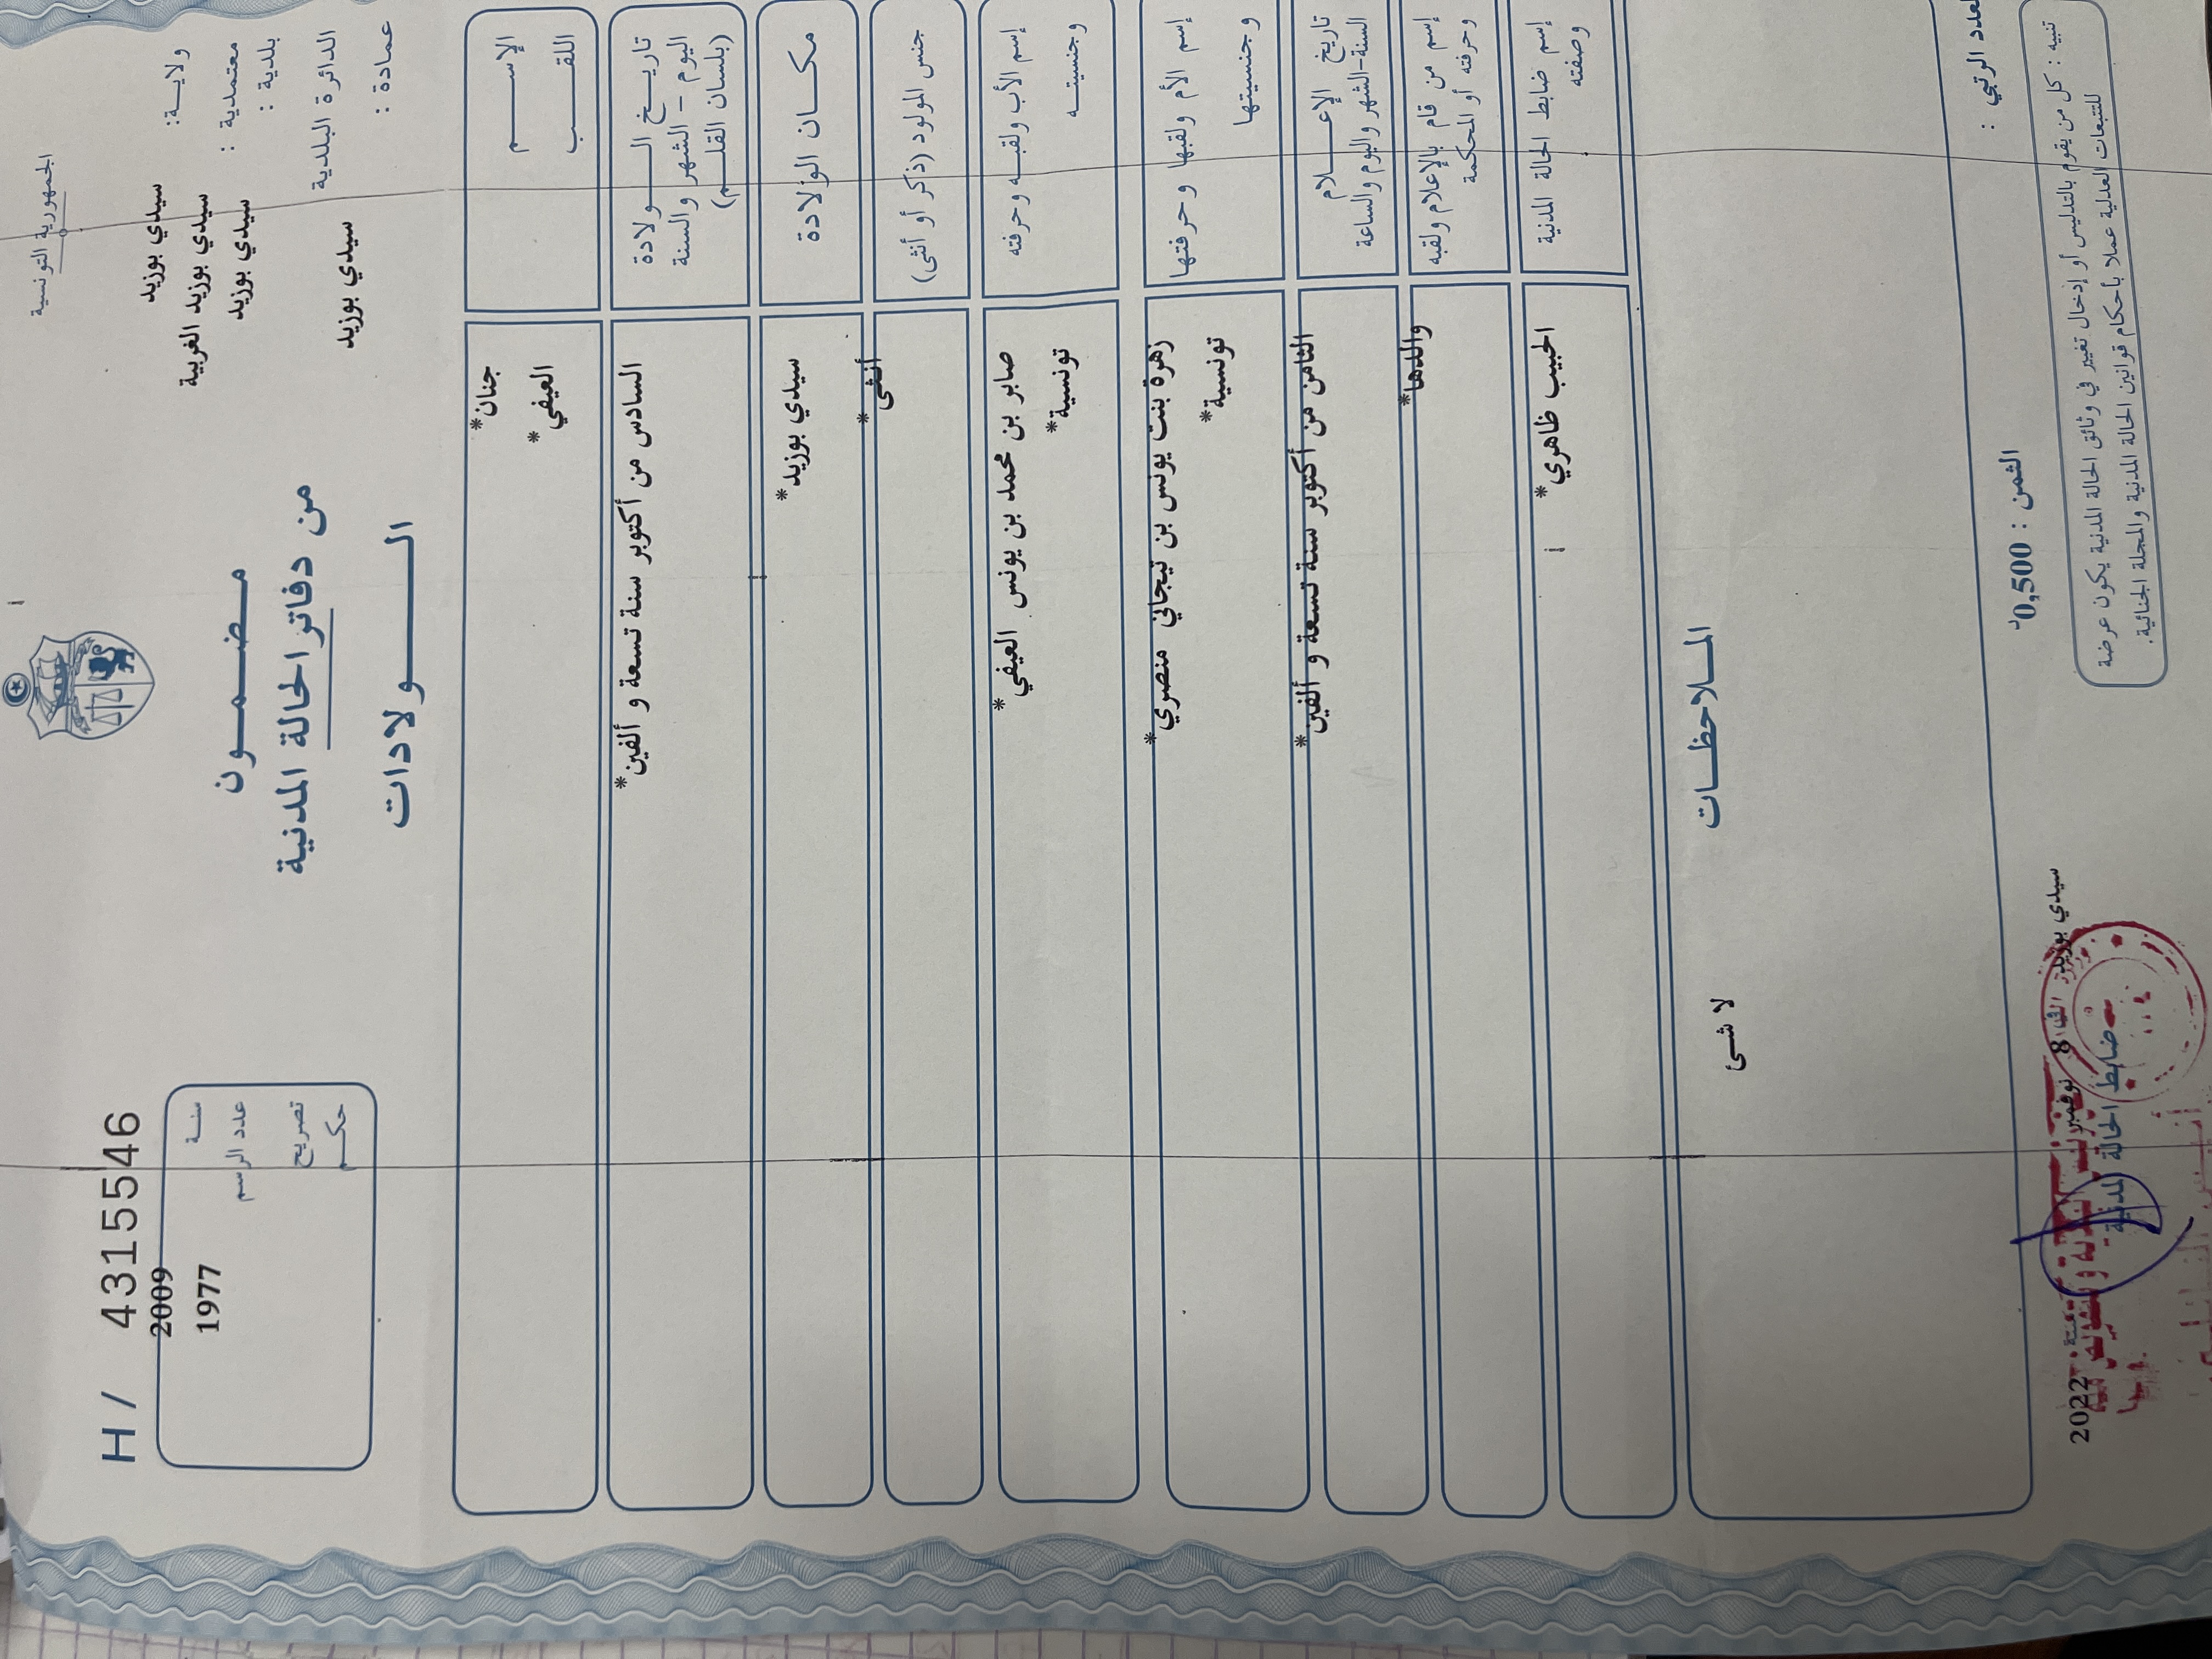 الجمهورية التونسية
H / 43155546
ولاية: سيدي بوزيد
معتمدية : سيدي بوزيد الغربية
بلدية : سيدي بوزيد
الدائرة البلدية
عمادة : سيدي بوزيد
مضمون
من دفاتر الحالة المدنية
الولادات
سنة 2009
عدد الرسم 1977
تصريح
حكم
الإسم جنان*
اللقب العيفي*
تاريخ الولادة السادس من أكتوبر سنة تسعة و ألفين*
اليوم - الشهر والسنة
(بلسان القلم)
مكان الولادة سيدي بوزيد*
جنس المولود (ذكر أو أنثى) أنثى*
إسم الأب ولقبه وحرفته صابر بن محمد بن يونس العيفي*
وجنسيته تونسية*
إسم الأم ولقبها وحرفتها زهرة بنت يونس بن تيجاني منصري*
وجنسيتها تونسية*
تاريخ الإعلام الثامن من أكتوبر سنة تسعة و ألفين*
السنة-الشهر واليوم والساعة
إسم من قام بالإعلام ولقبه والدها*
وحرفته أو المحكمة
إسم ضابط الحالة المدنية الحبيب ظاهري*
وصفته
الملاحظات
لا شئ
العدد الرتبي :
الثمن : 0,500د
سيدي بوزيد في 8 نوفمبر سنة 2022
ضابط الحالة المدنية
تنبيه : كل من يقوم بالتدليس أو إدخال تغيير في وثائق الحالة المدنية يكون عرضة
للتتبعات العدلية عملا بأحكام قوانين الحالة المدنية والمجلة الجنائية.